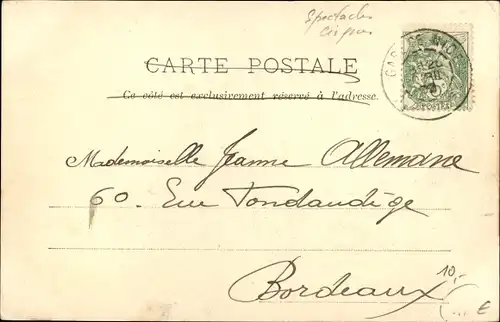 Spectacles
Cirque
CARTE POSTALE
Ce côté est exclusivement réservé à l'adresse.
Mademoiselle Jeanne Allemane
60. Rue Fondaudège
Bordeaux
10,-
€